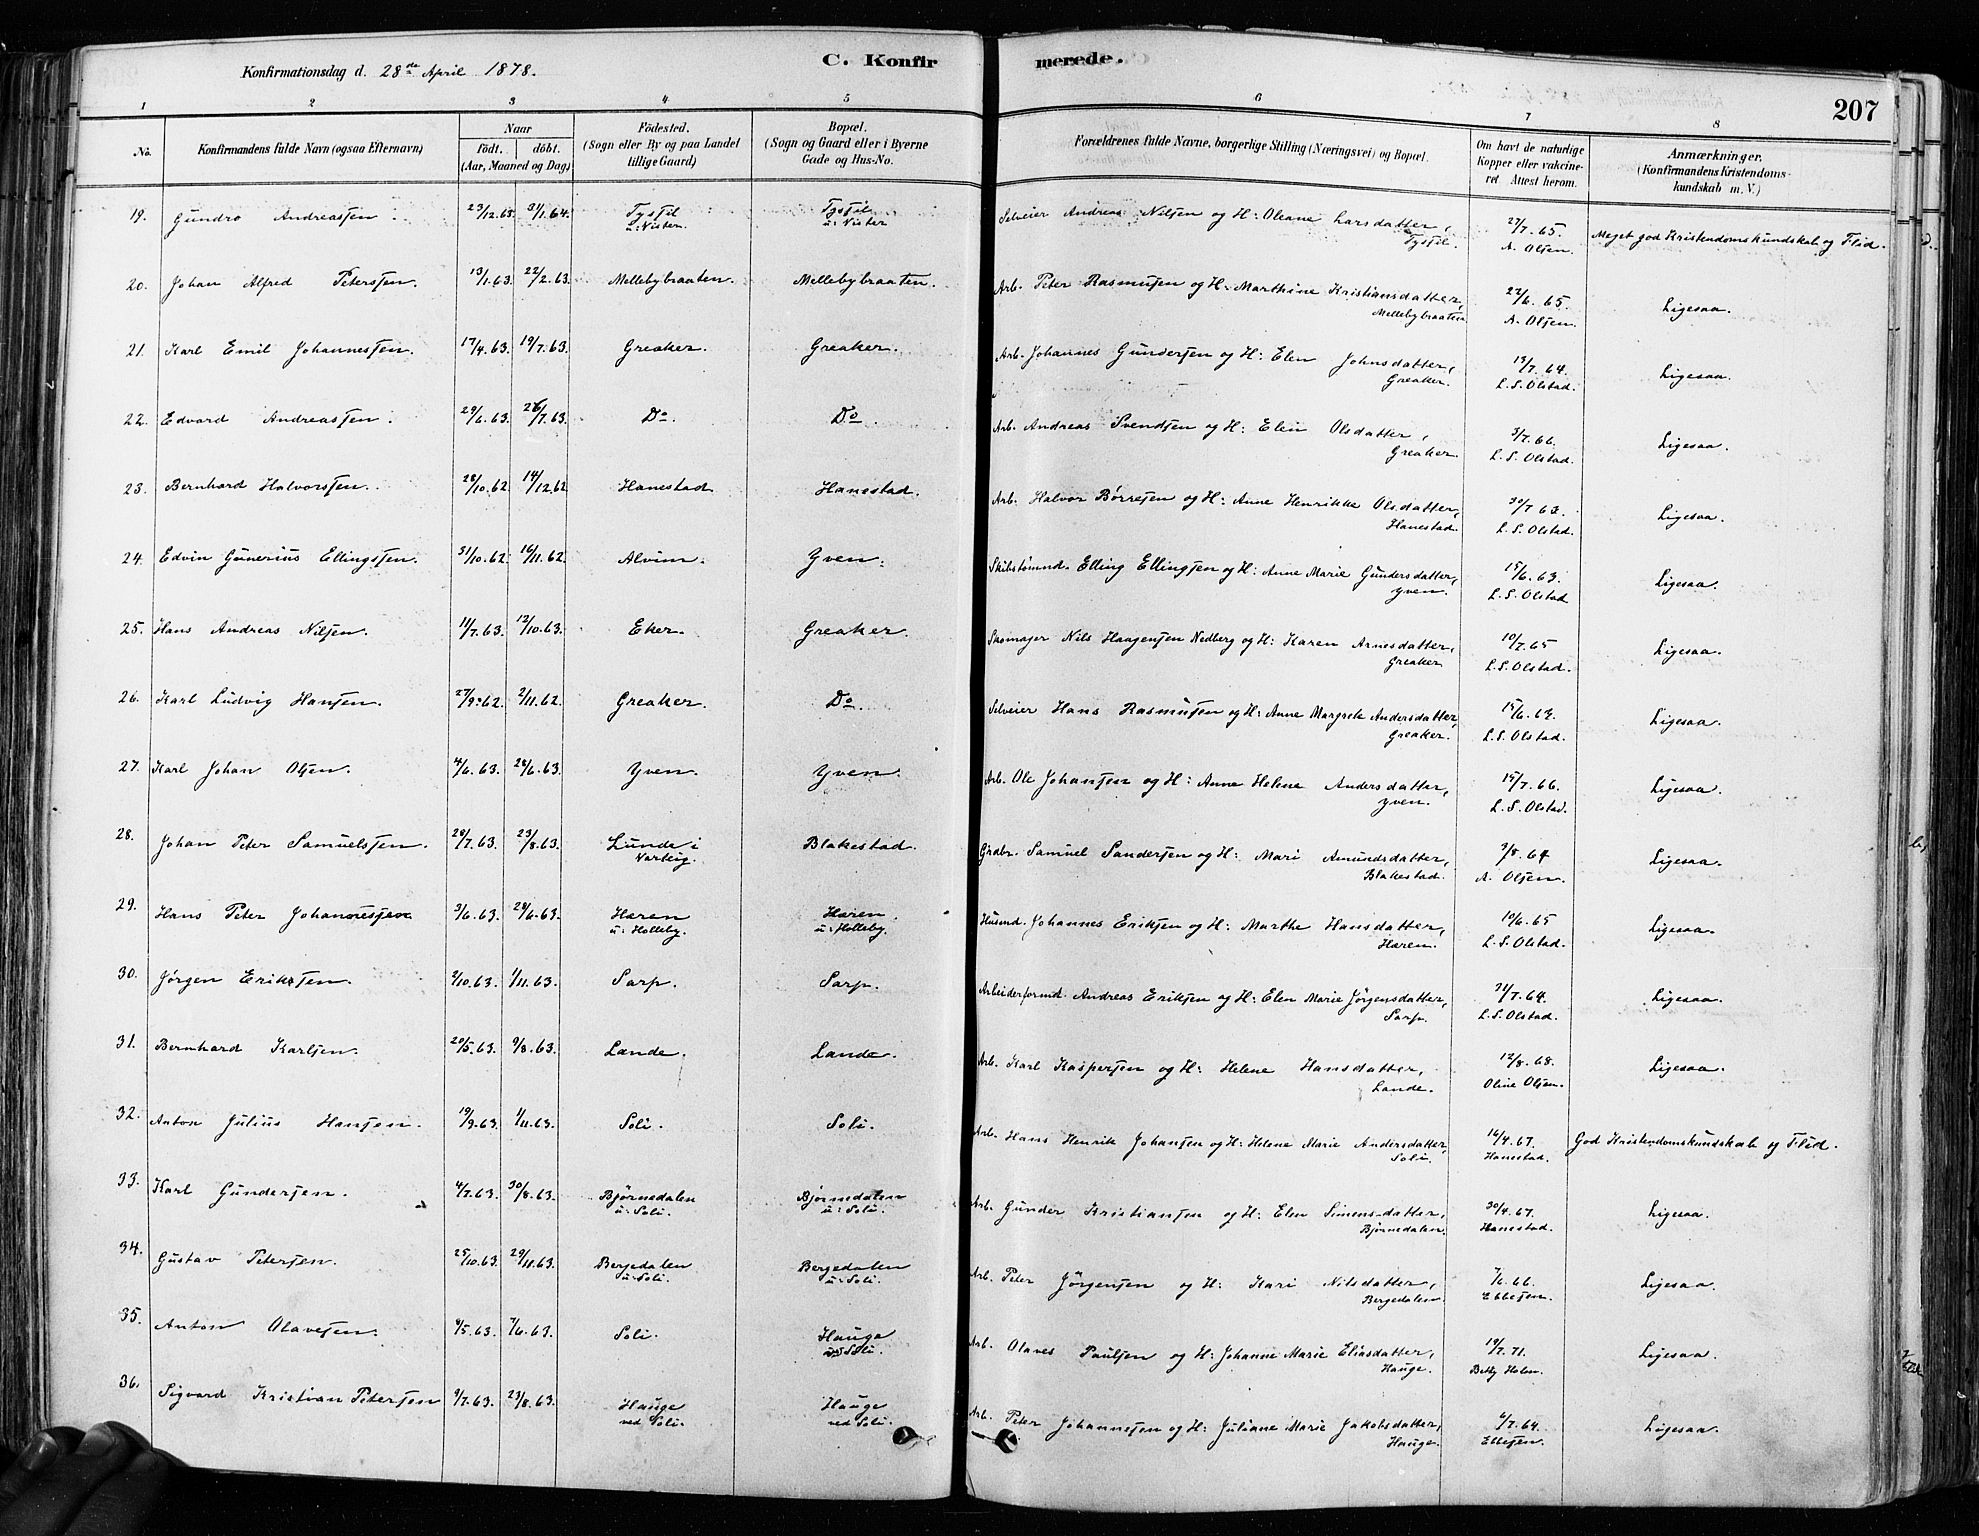 Konfirmationsdag d. 28de April 1878.
C. Konfirmerede.
207
1 2 3 4 5 6 7 8
No. Konfirmandens fulde Navn (ogsaa Efternavn) Naar født. døbt. (Aar, Maaned og Dag) Fødested. (Sogn eller By og paa Landet tillige Gaard) Bopæl. (Sogn og Gaard eller i Byerne Gade og Hus-No. Forældrenes fulde Navne, borgerlige Stilling (Næringsvei) og Bopæl. Om havt de naturlige Kopper eller vakcineret Attest herom. Anmærkninger. (Konfirmandens Kristendomskundskab m. V.)
19. Gundro Andreassen. 23/12.63. 31/1.64. Tysfil u: Nister. Tysfil u: Nister Selveier Andreas Nilsen og H: Oleane Larsdatter, Tysfil. 27/7.65. A. Olsen. Meget god Kristendomskundskab og Flid.
20. Johan Alfred Peterssen. 13/1.63. 22/2.63. Mellebybraaten. Mellebybraaten. Arb. Peter Rasmussen og H: Marthine Kristiansdatter, Mellebybraaten. 22/6.65. A. Olsen. Ligesaa.
21. Karl Emil Johannessen. 17/4.63. 19/7.63. Greaker. Greaker. Arb. Johannes Gundersen og H: Elen Johnsdatter, Greaker. 13/7.64. L.S. Olstad. Ligesaa.
22. Edvard Andreassen. 29/6.63. 26/7.63. Do. Do. Arb. Andreas Svendsen og H: Elen Olsdatter, Greaker. 3/7.66. L.S. Olstad. Ligesaa.
23. Bernhard Halvorssen. 28/10.62. 14/12.62 Hanestad Hanestad. Arb. Halvor Børresen og H: Anne Henrikke Olsdatter, Hanestad. 30/7.63. L.S. Olstad. Ligesaa.
24. Edvin Gunerius Ellingssen. 31/10.62. 16/11.62. Alvim. Yven. Skibstømmd. Elling Ellingsen og H: Anne Marie Gundersdatter, Yven. 15/6.63. L.S. Olstad Ligesaa.
25. Hans Andreas Nilsen. 11/7.63. 12/10.63. Eker. Greaker. Skomager Nils Haagensen Nedberg og H: Karen Arnesdatter, Greaker 10/7.65 L.S. Olstad. Ligesaa.
26. Karl Ludvig Hansen. 27/9.62. 2/11.62. Greaker. Do. Selveier Hans Rasmussen og H: Anne Margrete Andersdatter, Greaker. 15/6.63. L.S. Olstad. Ligesaa.
27. Karl Johan Olsen. 4/6.63. 28/6.63. Yven. Yven. Arb. Ole Johansen og H: Anne Helene Andersdatter, Yven. 15/7.66. L.S. Olstad. Ligesaa.
28. Johan Peter Samuelssen. 28/7.63. 23/8.63. Lunde i Varteig. Blakestad. Grdbr. Samuel Sandersen og H: Mari Amundsdatter, Blakestad. 3/8.64 A. Olsen. Ligesaa.
29. Hans Peter Johannessen 3/6.63. 28/6.63. Haren u: Holleby. Haren. u: Holleby. Husmd. Johannes Eriksen og H: Marthe Hansdatter, Haren. 10/6.65 L.S. Olstad. Ligesaa.
30. Jørgen Erikssen. 2/10.63. 1/11.63. Sarp. Sarp. Arbeiderformd. Andreas Eriksen og H: Elen Marie Jørgensdatter, Sarp. 21/7.64. L.S. Olstad. Ligesaa.
31. Bernhard Karlsen. 20/5.63. 9/8.63. Lande. Lande. Arb. Karl Kaspersen og H: Helene Hansdatter, Lande. 12/8.68. Oline Olsen. Ligesaa.
32. Anton Julius Hansen. 19/9.63. 1/11.63. Soli. Soli. Arb. Hans Henrik Johansen og H: Helene Marie Andersdatter, Soli. 16/4.67. Hanestad. God Kristendomskundskab og Flid.
33. Karl Gundersen. 4/7.63. 30/8.63. Bjørnedalen u: Soli. Bjørnedalen u: Soli. Arb. Gunder Kristiansen og H: Elen Simensdatter, Bjørnedalen. 30/4.67. Hanestad. Ligesaa.
34. Gustav Petersen. 25/10.63. 29/11.63. Bergedalen u: Soli. Bergedalen u: Soli. Arb. Peter Jørgensen og H: Kari Nilsdatter, Bergedalen 7/6.66. Ebbesen. Ligesaa.
35. Anton Olavesen. 8/5.63. 7/6.63. Soli. Hauge ved Soli. Arb. Olaves Paulsen og H: Johanne Marie Eliasdatter, Hauge. 19/7.71. Betty Holm. Ligesaa.
36. Sigvard Kristian Petersen 9/7.63. 23/8.63. Hauge ved Soli. Hauge ved Soli. Arb. Peter Johannesen og H: Juliane Marie Jakobsdatter, Hauge. 6/7.64. Ebbesen. Ligesaa.